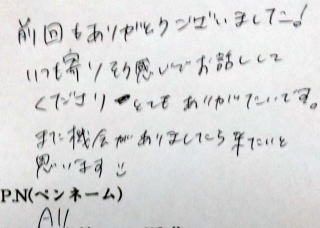 前回もありがとうございました!
いつも寄りそう感じでお話しして
くださり とてもありがたいです。
また機会がありましたら来たいと
思います
P.N(ペンネーム)
All